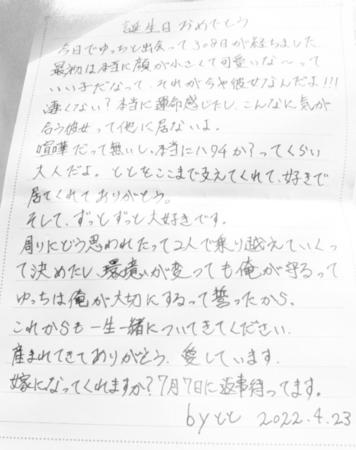 誕生日おめでとう
今日でゆっちと出会って308日が経ちました
最初は本当に顔が小さくて可愛いな〜って
いい子だなって、それが今や彼女なんだよ!!!
凄くない?本当に運命感じたし、こんなに気が
合う彼女って他に居ないよ。
喧嘩だって無いし、本当にハタチか?ってくらい
大人だよ。ととをここまで支えてくれて、好きで
居てくれてありがとう。
そして、ずっとずっと大好きです。
周りにどう思われたって2人で乗り越えていくっ
て決めたし、環境が変っても俺が守るって
ゆっちは俺が大切にするって誓ったから
これからも一生一緒についてきてください
産まれてきてありがとう、愛しています。
嫁になってくれますか?7月7日に返事待ってます。
byとと 2022.4.23